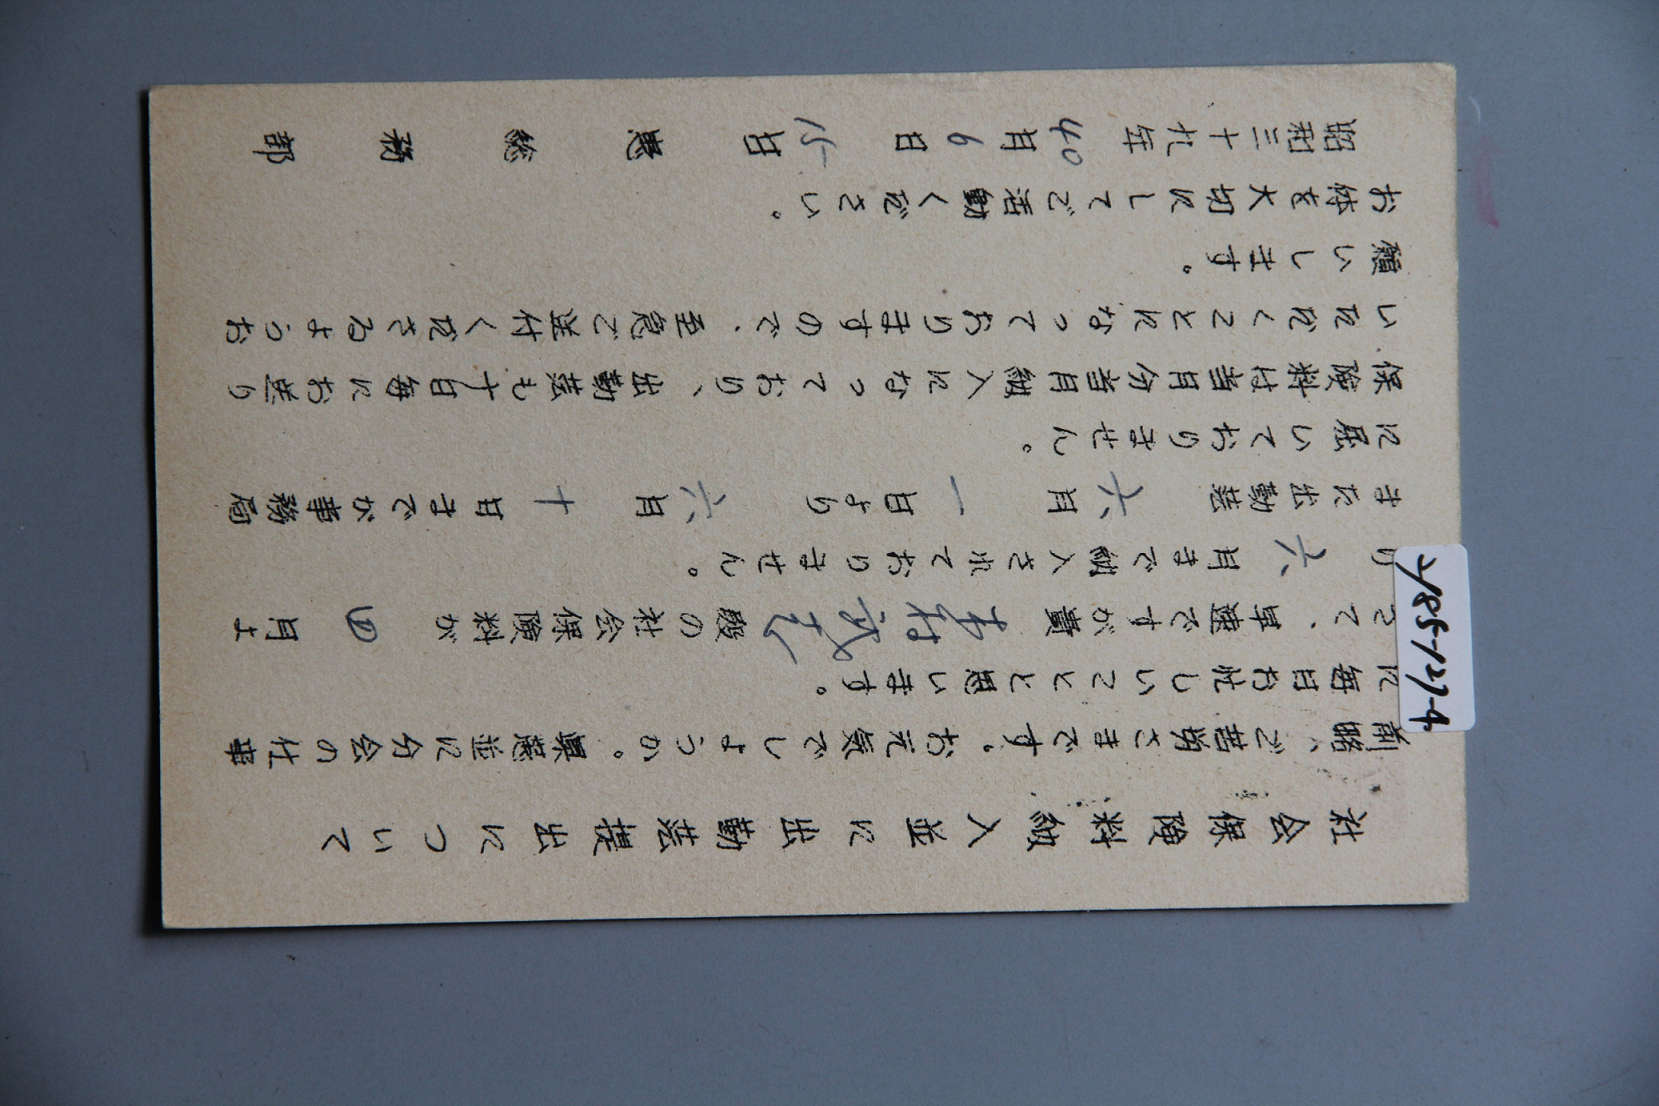 社会保険料納入並に出勤莚提出について
前略、ご苦労さまです。お元気でしょうか。県莚並に分会の仕事
に毎日お忙しいことと思います。
さて、早速ですが貴 殿の社会保険料が 四 月よ
り 六 月まで納入されておりません。
また出勤莚 六月 一 日より 六月 十 日までが事務局
に届いておりません。
保険料は当月分当月納入になっており、出勤莚も十日毎にお送り
いただくことになっておりますので、至急ご送付くださるようお
願いします。
お体を大切にしてご活動ください。
昭和三十九年 40 月 6 日 15 日 総務部
4855-127-4